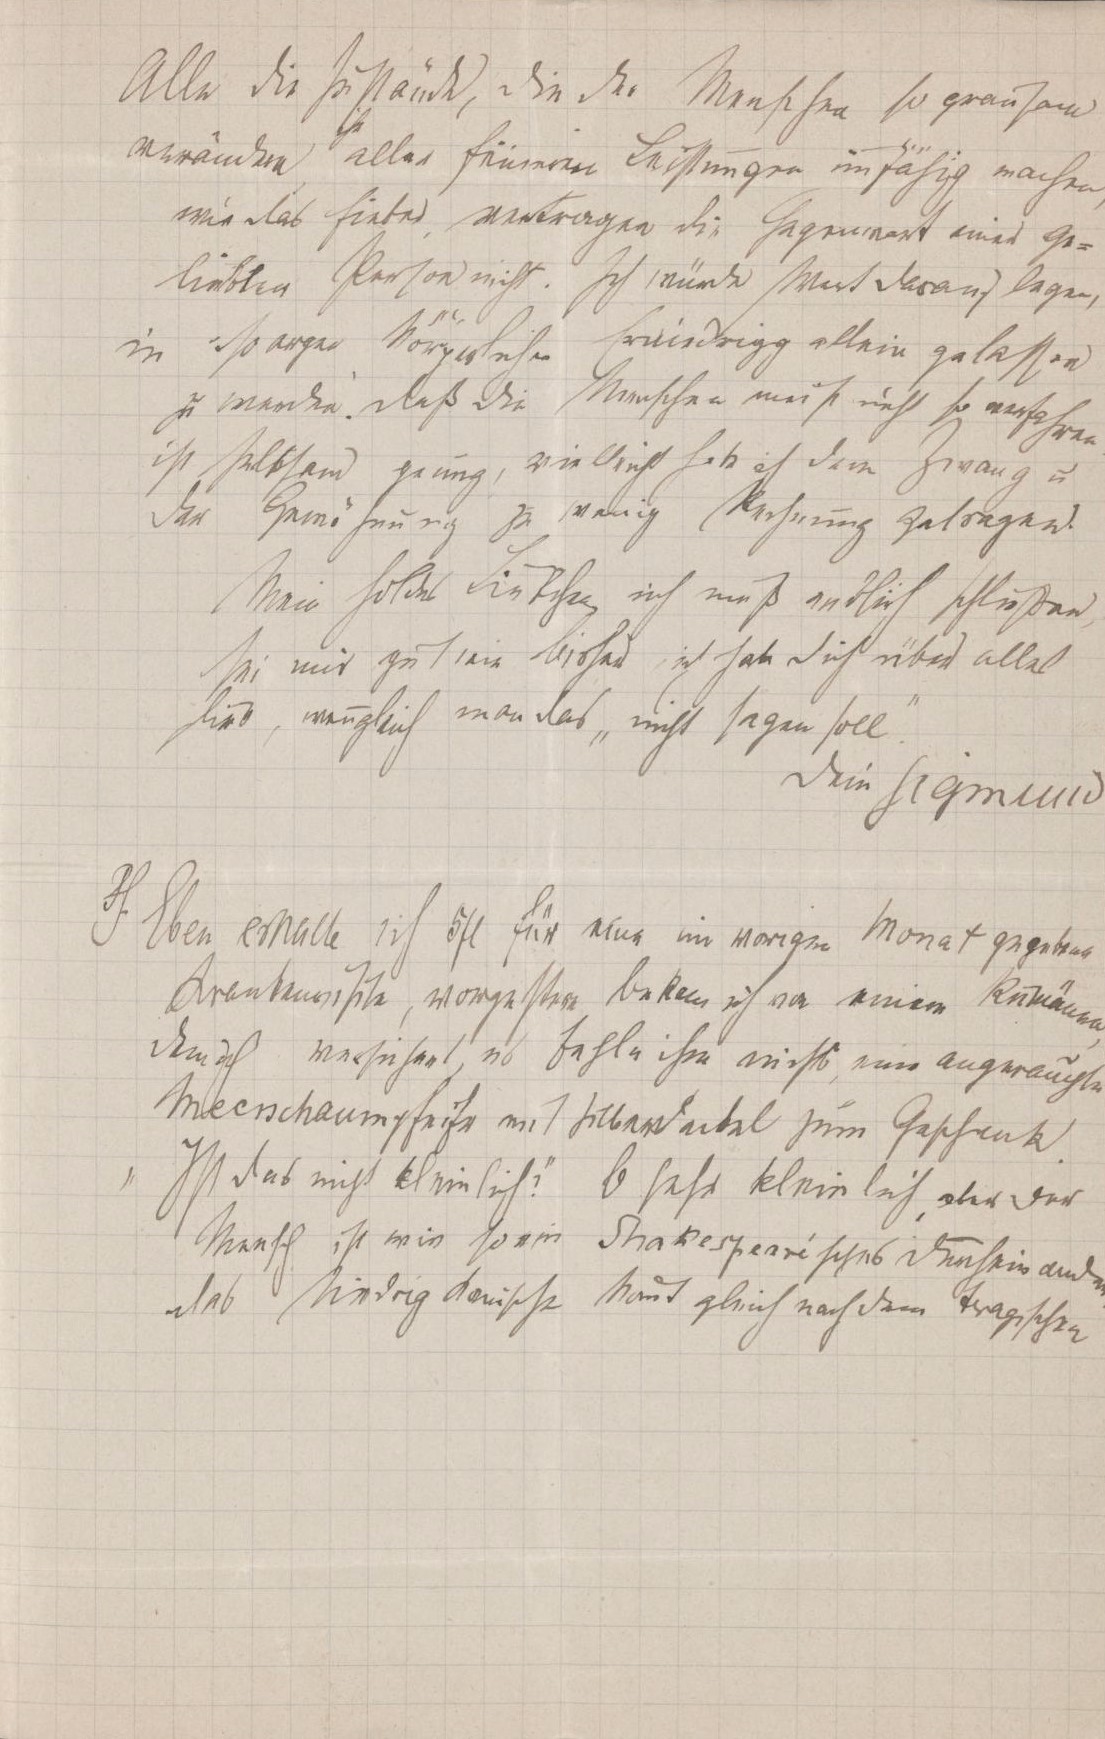 Alle die Zustände, die den Menschen so grausam
verändern, ihn aller feineren Leistungen unfähig machen,
wie das Fieber, vertragen die Gegenwart einer ge-
liebten Person nicht. Ich würde Wert darauf legen,
in so arger körperlicher allein gelassen
zu werden. Daß die Menschen meist nicht so verfahren
ist seltsam genug, vielleicht habe ich dem Zwang u
der Gewöhnung zu wenig Rechnung getragen.
Mein holdes Liebchen, ich muß endlich schließen,
sei mir gut wie bisher, ich habe Dich über alles
lieb, wenngleich man das „nicht sagen soll".
Dein Sigmund
Eben erhalte ich 5fl für eine im vorigen Monat gegebene
Krankenvisite, vorgestern bekam ich von einem Rumänen,
dem ich versichert, es fehle ihm nichts, eine angerauchte
Meerschaumpfeife mit Silberdeckel zum Geschenk.
„Ist das nicht kleinlich?" O sehr kleinlich, aber der
Mensch ist wie so ein Shakespeare'sches Durcheinander,
das Niedrigkomische kommt gleich nach dem tragischen